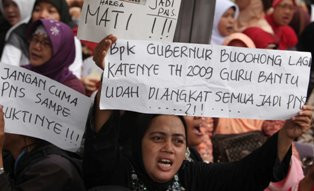 HARGA
MATI !!!
JADI
PNS
Bpk GUBERNUR BUOOHONG LAGI
KATENYE TH 2009 GURU BANTU
UDAH DIANGKAT SEMUA JADI PNS
.......?!!........
JANGAN CUMA
PNS SAMPE
UKTINYE !!!